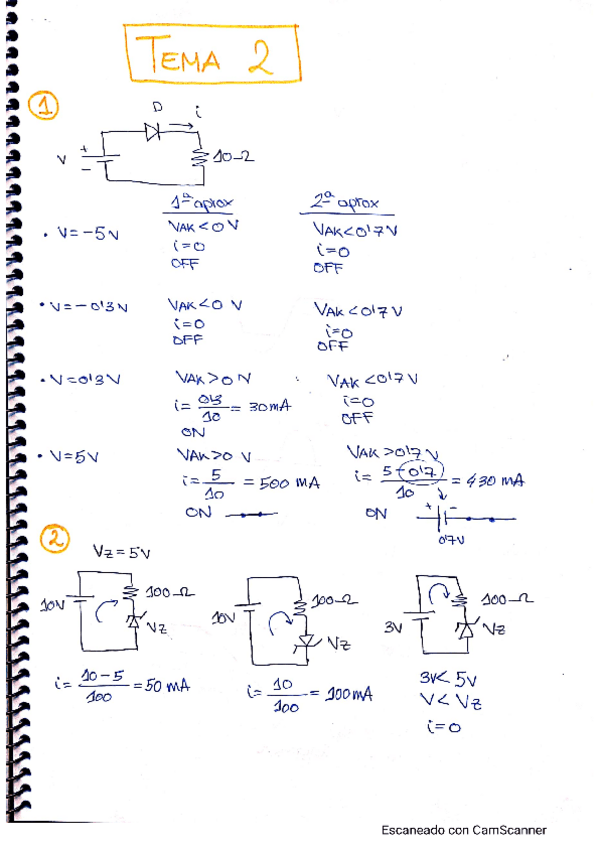 TEMA 2
1
D i
V + - 10Ω
1ª aprox 2ª aprox
• V=-5V VAK<0V VAK<0'7V
i=0 i=0
OFF OFF
• V=-0'3V VAK<0 V VAK<0'7V
i=0 i=0
OFF OFF
• V=0'3V VAK>0 V VAK<0'7V
i= 0'3/10 = 30mA i=0
ON OFF
• V=5V VAK>0 V VAK>0'7V
i= 5/10 = 500 mA i= 5-0'7/10 = 430 mA
ON ON + -
0'7V
2
VZ=5V
10V 100Ω VZ 10V 100Ω VZ 3V 100Ω VZ
i= 10-5/100 = 50 mA i= 10/100 = 100mA 3V< 5V
V< VZ
i=0
Escaneado con CamScanner